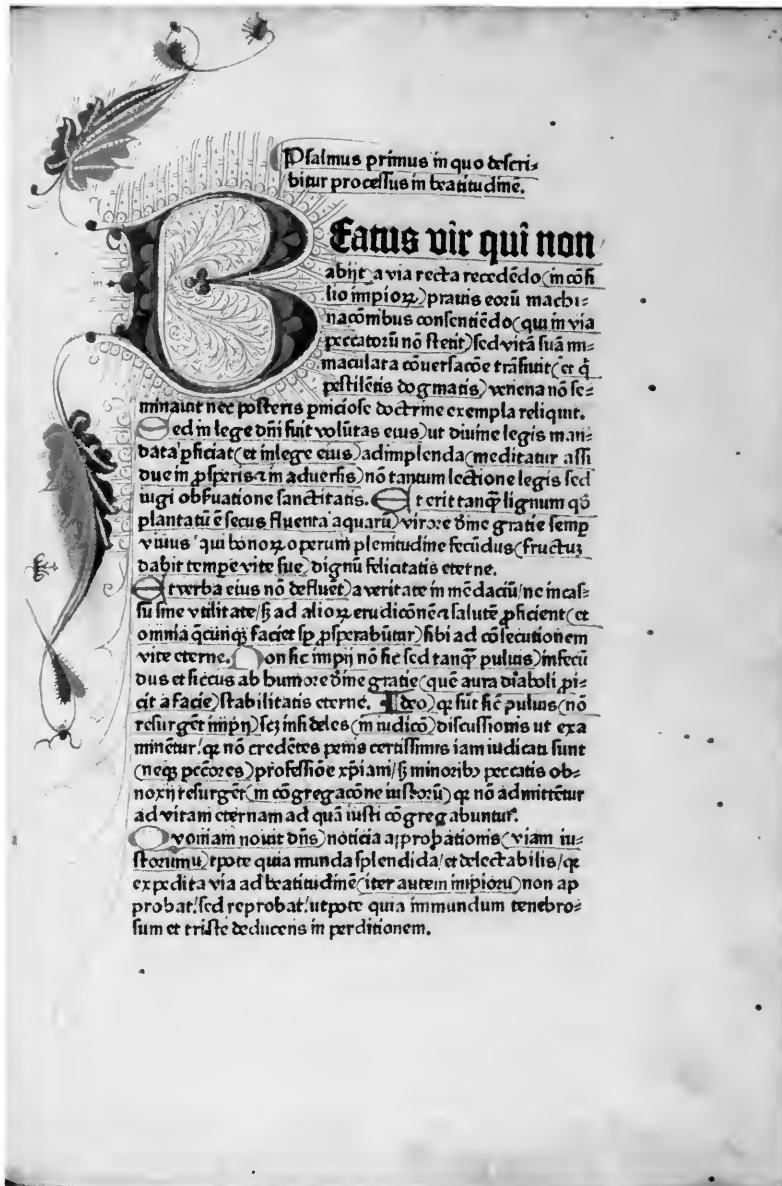 Psalmus primus in quo descri-
bitur processus in beatitudinē.
Beatus vir qui non
abijt a via recta recedēdo (in cōsi
lio impioꝝ) prauis eorū machi-
nacōnibus consentiēdo (qui in via
peccatorū nō stetit) sed vitā suā im-
maculata cōuersacōe trāsiuit (et q̄
pestilētis dogmatis) venena nō se-
minauit nec posteris pniciose doctrine exempla reliquit.
Sed in lege dn̄i fuit volūtas eius) ut diuine legis man-
data pficiat (et in lege eius) adimplenda (meditatur assi
due in ꝓsperis ⁊ in aduersis) nō tantum lectione legis sed
iugi obseruatione sanctitatis. Et erit tanq̄ lignum qd̄
plantatū ē secus fluenta aquarū) virore diīne gratie semp
viuus qui bonoꝝ operum plenitudine fecūdus (fructuz
dabit tempe vite sue) dignū felicitatis eterne.
Et verba eius nō defluēt) a veritate in mēdaciū/ ne incas-
su sine vtilitate/ sꝫ ad alioꝝ erudicōnē ⁊ salutē ꝓficient (et
omnia q̄cunqꝫ faciet sp̄ ꝓsperabūtur) sibi ad cōsecutionem
vite eterne. Non sic impij nō sic sed tanq̄ puluis) infecū
dus et siccus ab humore diīne gratie (quē aura diaboli pi-
cit a facie) stabilitatis eterne. Ideo) qꝛ sūt sic̄ puluis (nō
resurgēt impij) scꝫ infideles (in iudicō) discussionis ut exa
minētur/ qꝛ nō credētes penis certissimis iam iudicati sunt
(neqꝫ pccōres) professiōe xp̄iani/ sꝫ minoribꝰ peccatis ob-
noxij resurgēt (in cōgregacōne iustorū) qꝛ nō admittētur
ad vitam eternam ad quā iusti cōgregabuntur.
Quoniam nouit dn̄s) noticia approbationis (viam iu-
storum u)tpote quia munda splendida/ et delectabilis/ qꝛ
expedita via ad beatitudinē (iter autem impioꝝ) non ap
probat/ sed reprobat/ utpote quia immundum tenebro-
sum et triste deducens in perditionem.